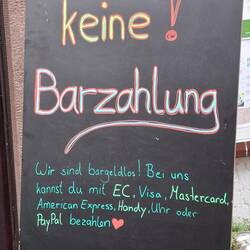 keine!
Barzahlung
Wir sind bargeldlos! Bei uns
kannst du mit EC, Visa, Mastercard,
American Express, Handy, Uhr oder
PayPal bezahlen